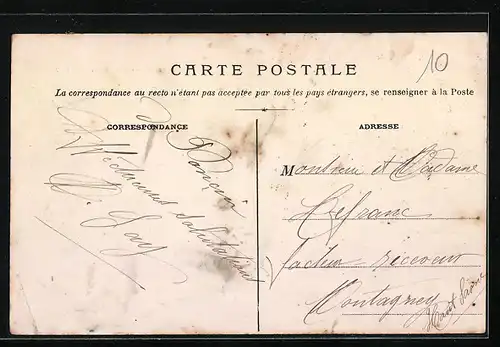 10
CARTE POSTALE
La correspondance au recto n'étant pas acceptée par tous les pays étrangers, se renseigner à la Poste
CORRESPONDANCE
ADRESSE
salutations
Monsieur et Madame
Lefranc
facteur receveur
Montagney
Haute Saône